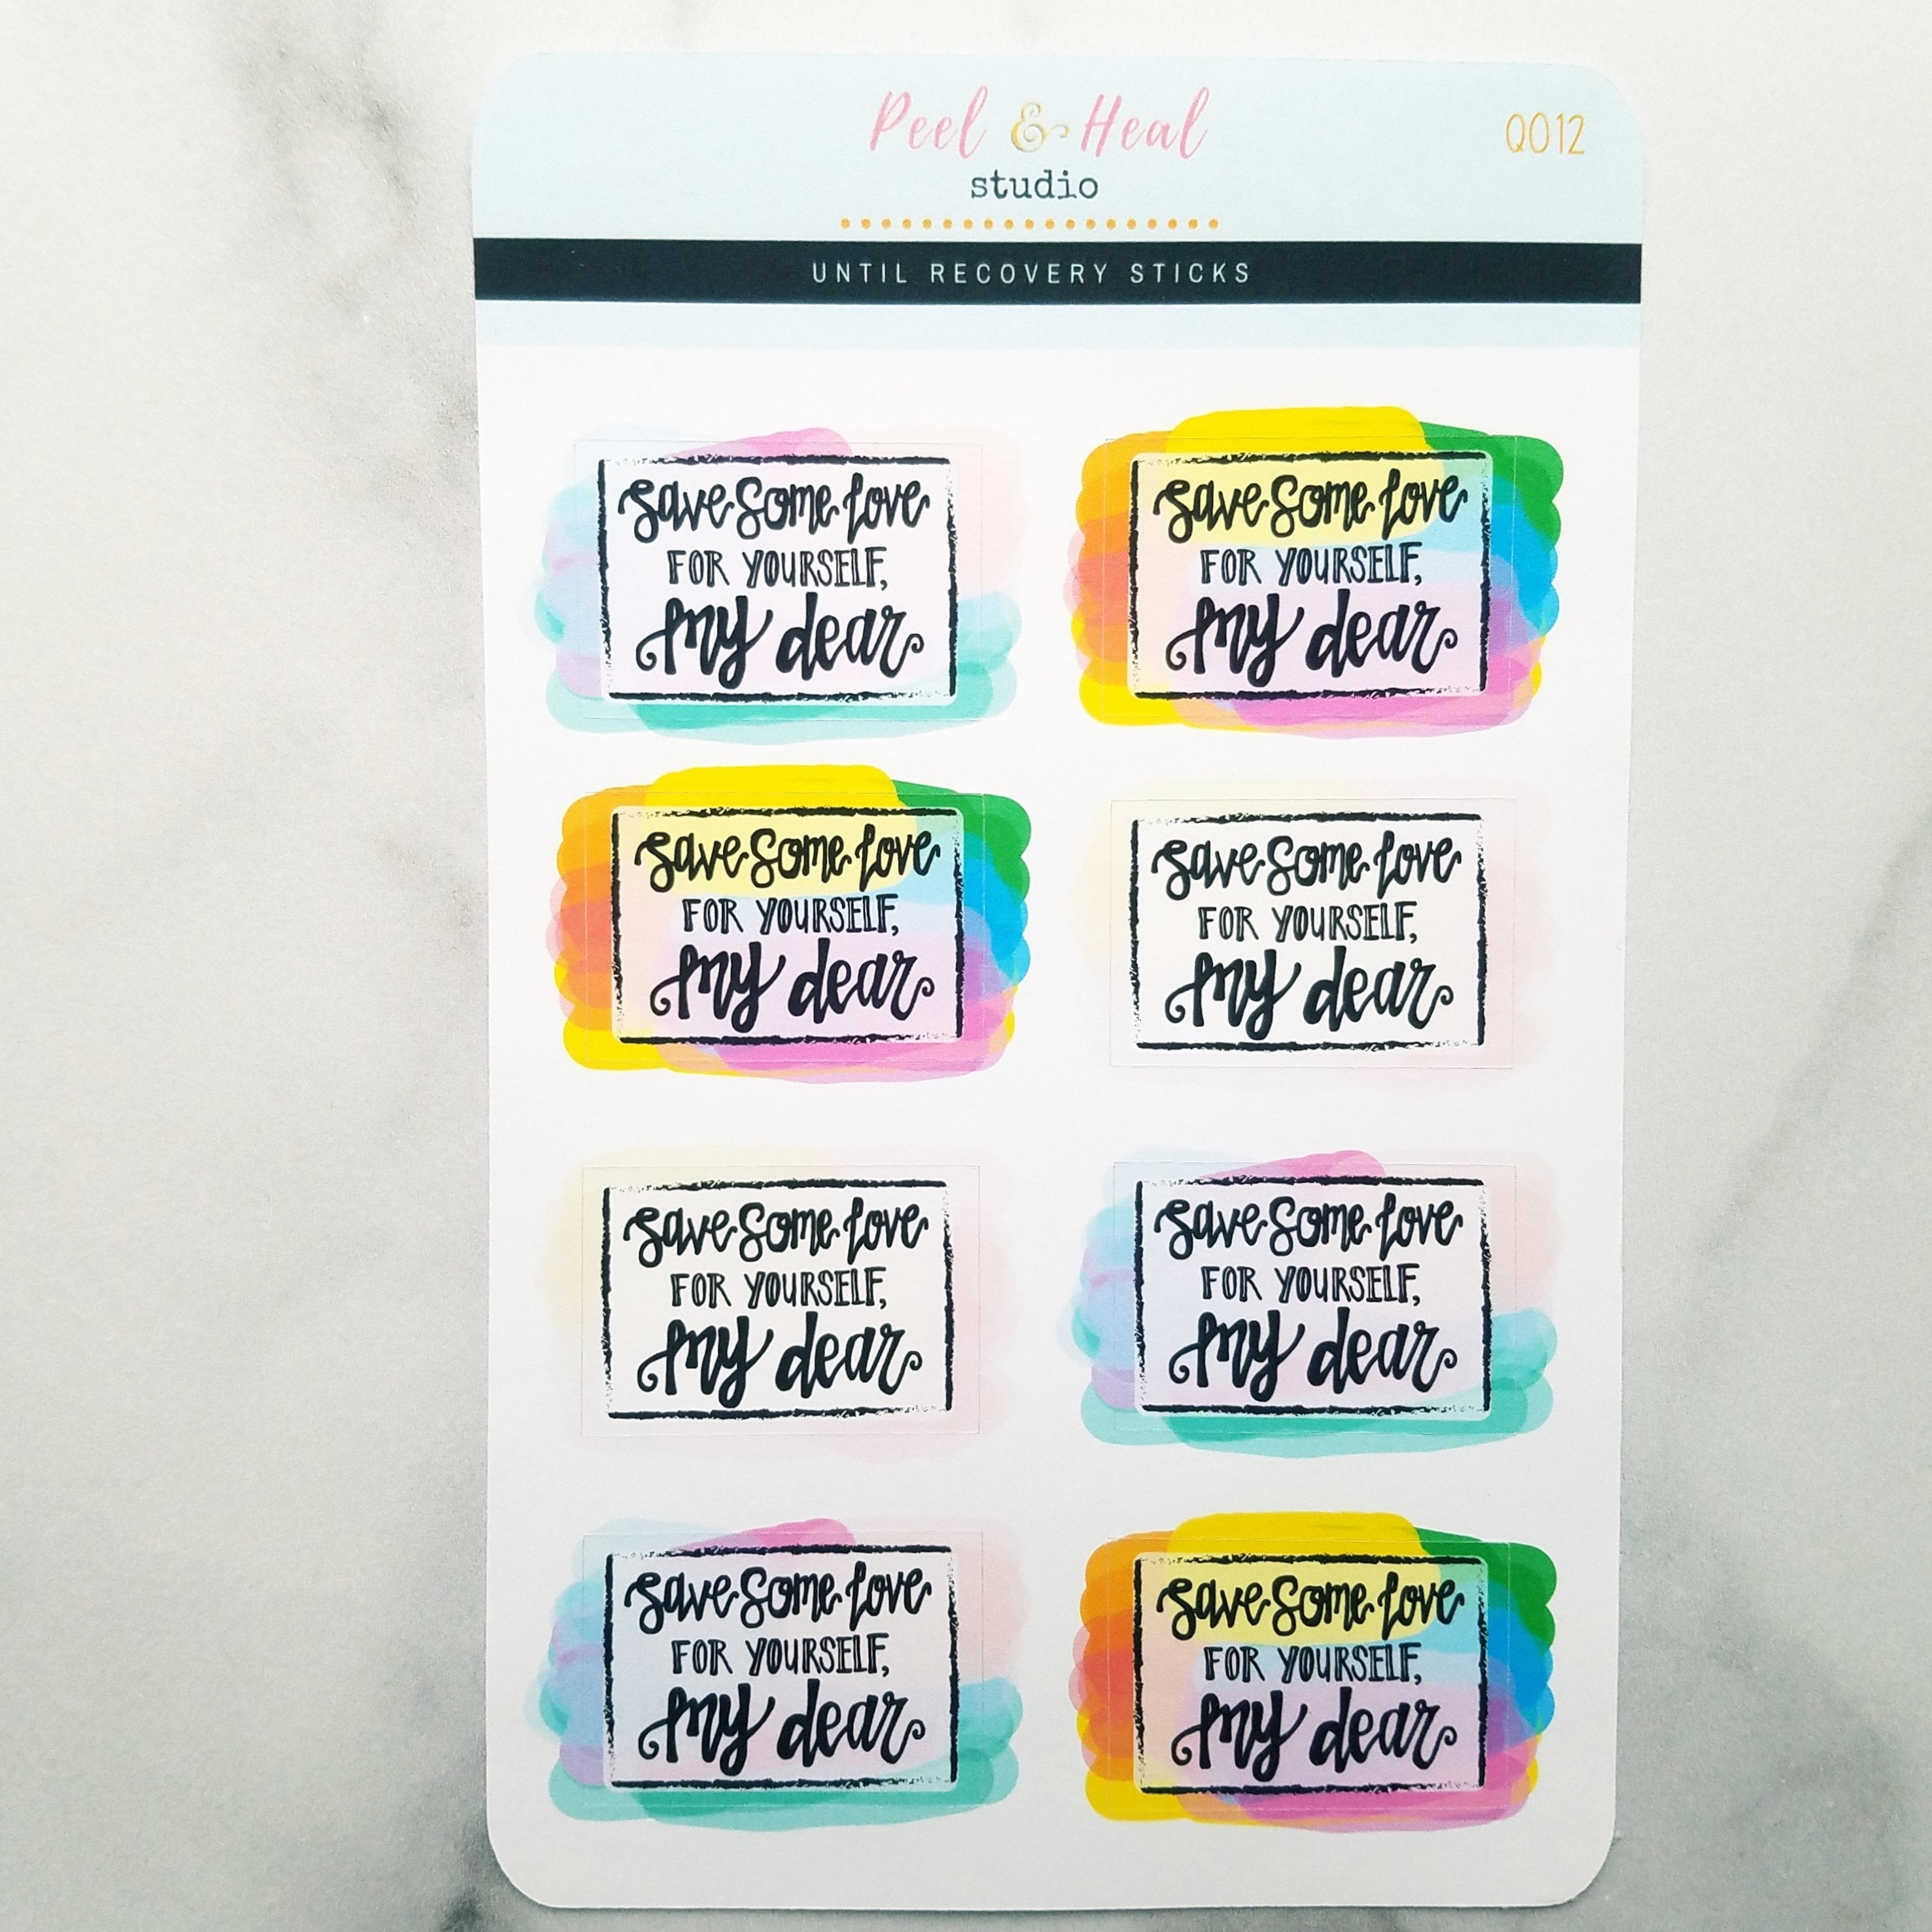 Peel & Heal
studio
Q012
UNTIL RECOVERY STICKS
save some love
FOR YOURSELF,
my dear
save some love
FOR YOURSELF,
my dear
save some love
FOR YOURSELF,
my dear
save some love
FOR YOURSELF,
my dear
save some love
FOR YOURSELF,
my dear
save some love
FOR YOURSELF,
my dear
save some love
FOR YOURSELF,
my dear
save some love
FOR YOURSELF,
my dear